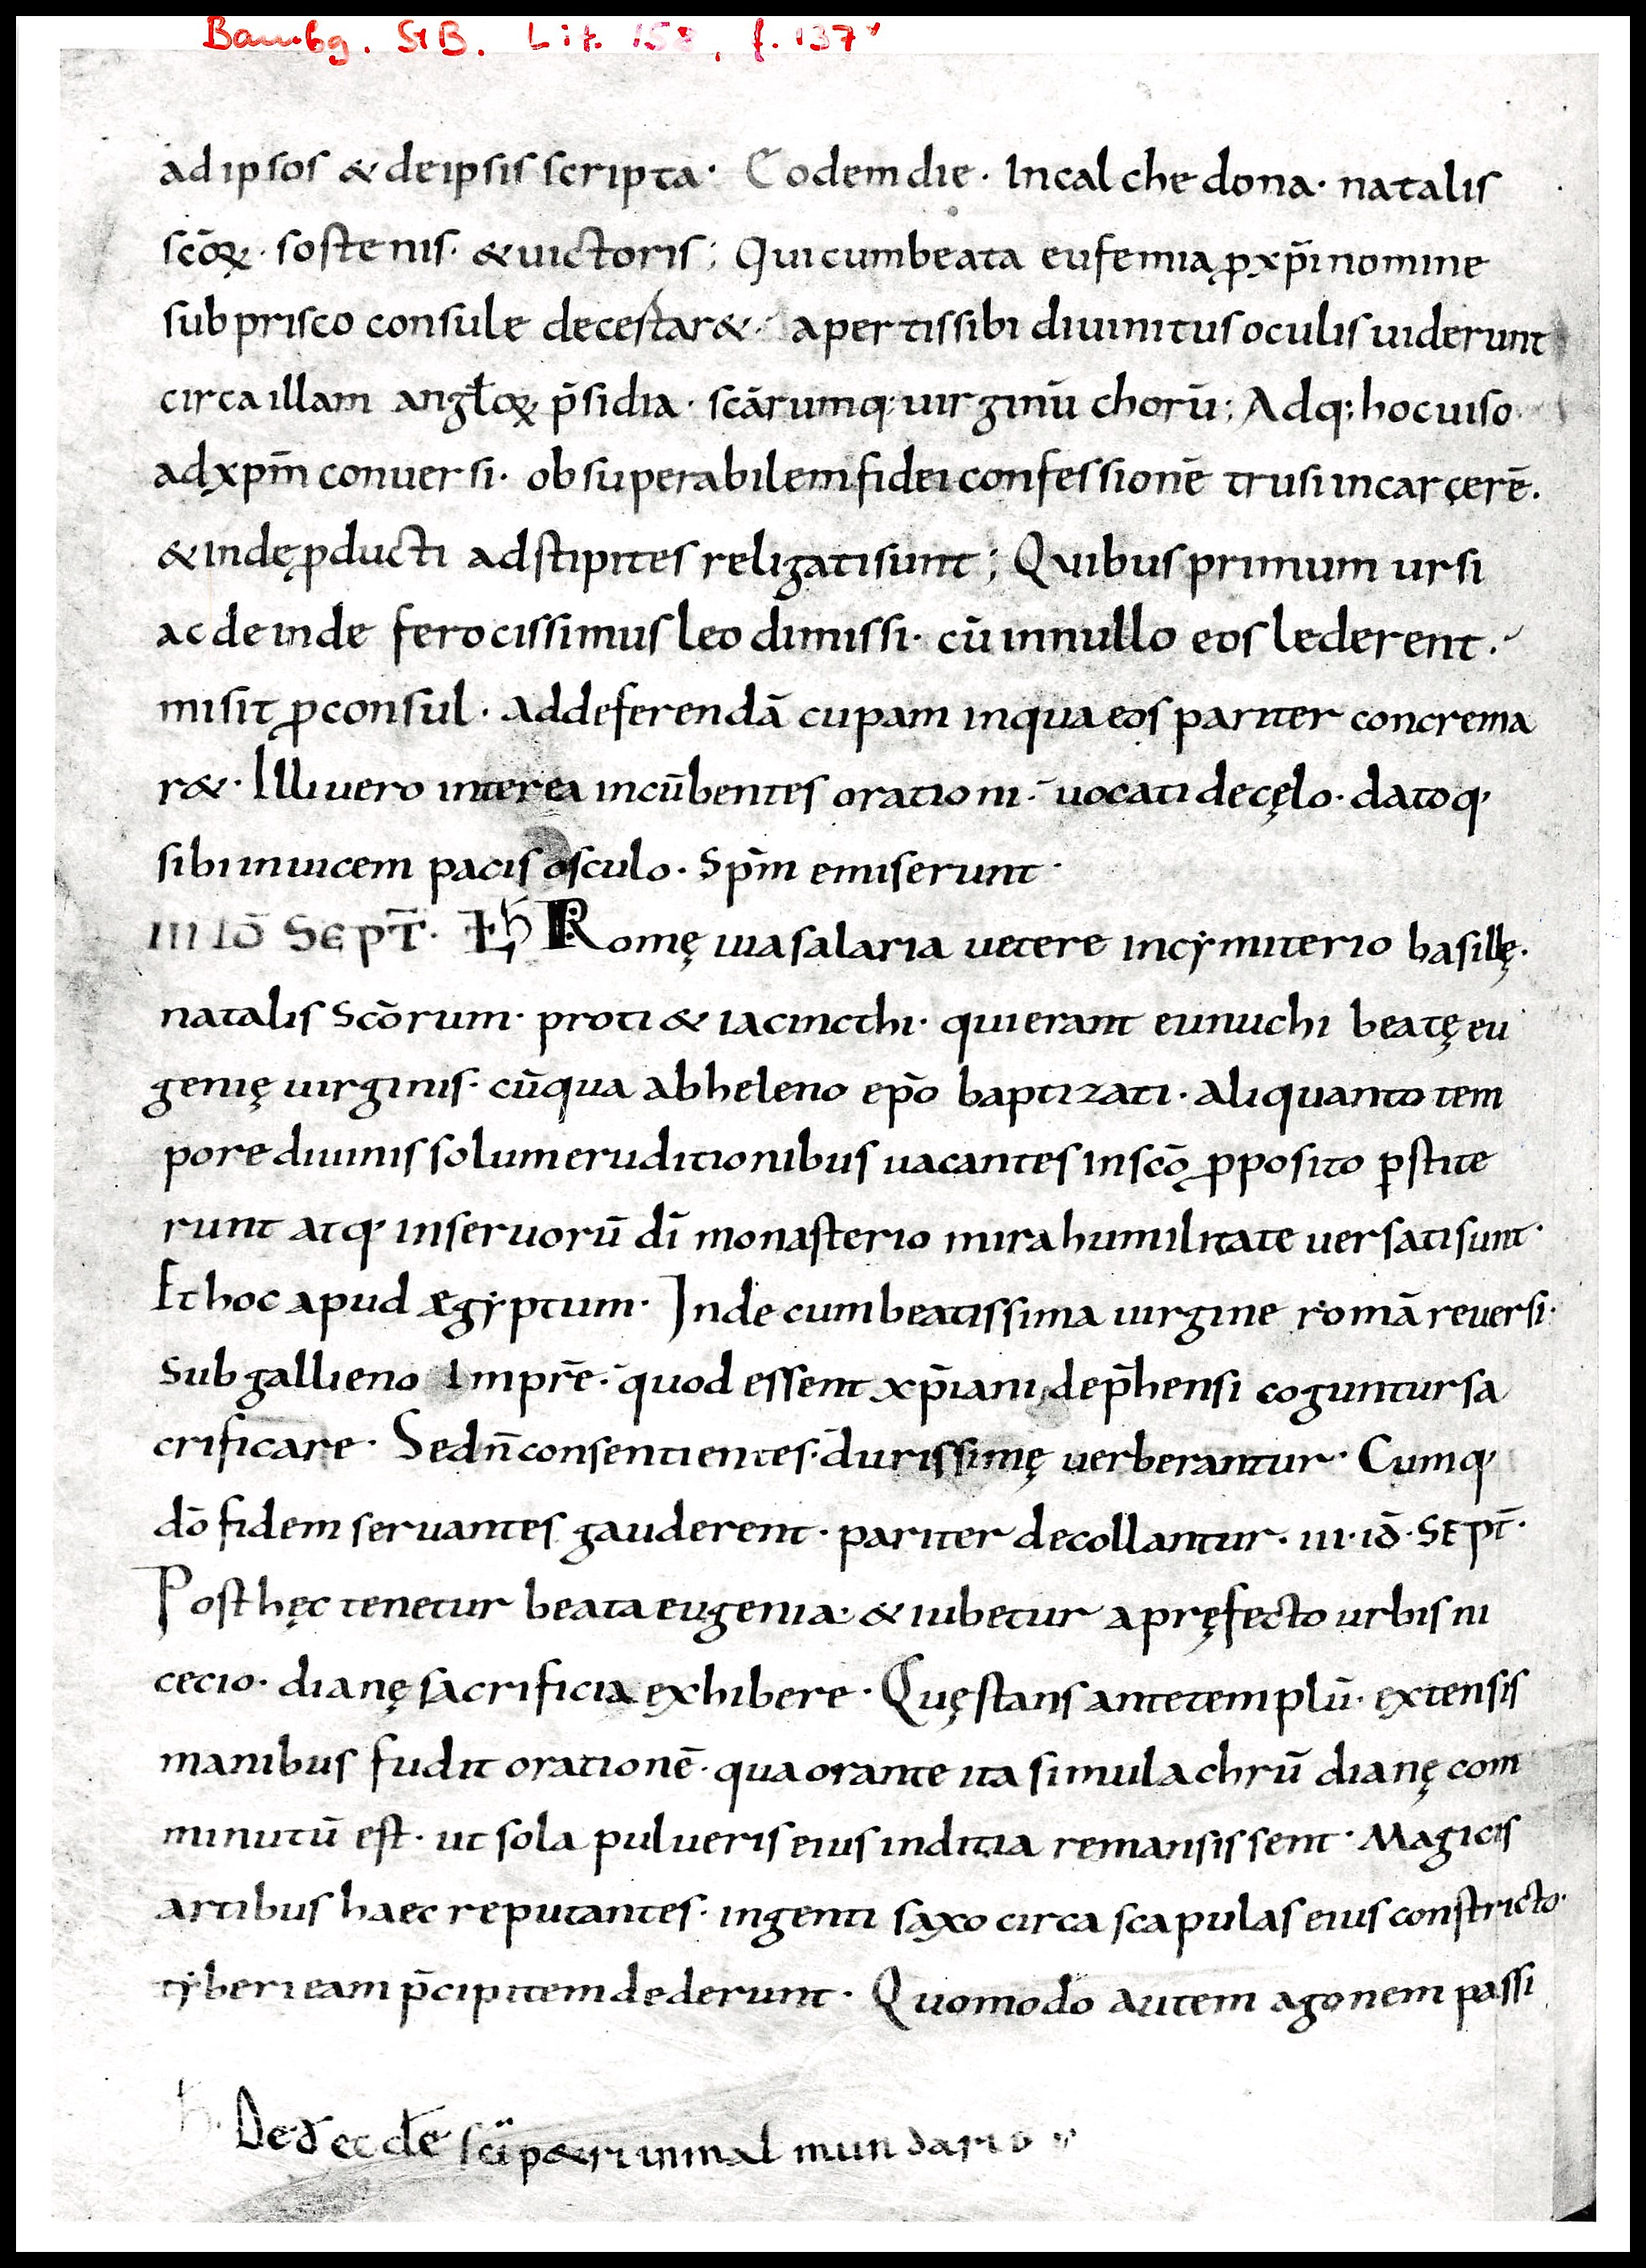 Bambg. StB. Lit. 158, f. 137v
ad ipsos & de ipsis scripta· Eodem die· In calchedona· natalis
scōꝝ· sostenis· & uictoris; Qui cum beata eufemia ꝓ xp̄i nomine
sub prisco consule decertar&· apertis sibi diuinitus oculis uiderunt
circa illam angłoꝝ p̄sidia· scārumq; uirginū chorū; Adq; hoc uiso
ad xpm̄ conuersi· ob superabilem fidei confessionē trusi in carcerē.
& inde ꝓducti ad stipites religati sunt; Quibus primum ursi
ac deinde ferocissimus leo dimissi· cū in nullo eos lederent·
misit ꝓconsul· ad deferendā cupam in qua eos pariter concrema
r&· Illi uero interea incūbentes orationi· uocati de cęlo· datoq;
sibi inuicem pacis osculo· Spm̄ emiserunt·
III ID̄ SEPT̄· Romę uia salaria uetere in cẏmiterio basillę·
natalis Scōrum· proti & iacincthi· qui erant eunuchi beatę eu
genię uirginis· cū qua ab heleno ep̄o baptizati· aliquanto tem
pore diuinis solum eruditionibus uacantes in scō ꝓposito ꝑstite
runt atq; in seruorū dī monasterio mira humilitate uersati sunt·
Et hoc apud ægẏptum· Inde cum beatissima uirgine romā reuersi·
Sub gallieno Imprē· quod essent xp̄iani dep̄hensi coguntur sa
crificare· Sed n̄ consentientes· durissimę uerberantur· Cumq;
dō fidem seruantes gauderent· pariter decollantur· III· ID̄· SEPT̄·
Post hęc tenetur beata eugenia· & iubetur a pręfecto urbis ni
cecio· dianę sacrificia exhibere· Quę stans ante templū· extensis
manibus fudit orationē· qua orante ita simulachrū dianę com
minutū est· ut sola pulueris eius inditia remansissent· Magicis
artibus haec reputantes· ingenti saxo circa scapulas eius constricto·
tẏberi eam p̄cipitem dederunt· Quomodo autem agonem passi